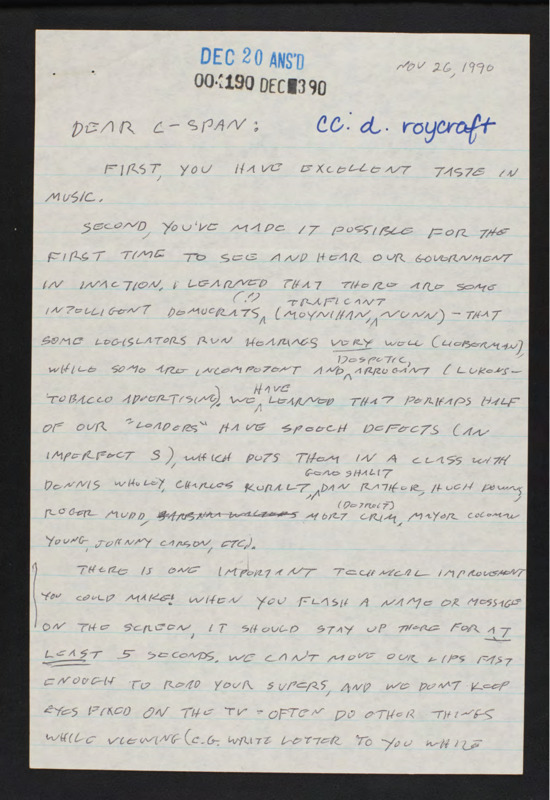 DEC 20 ANS'D
NOV 26, 1990
DEC 3 90
DEAR C-SPAN:
cc: d. roycraft
FIRST, YOU HAVE EXCELLENT TASTE IN
MUSIC.
SECOND, YOU'VE MADE IT POSSIBLE FOR THE
FIRST TIME TO SEE AND HEAR OUR GOVERNMENT
IN INACTION. I LEARNED THAT THERE ARE SOME
(!) TRAFICANT
INTELLIGENT DEMOCRATS (MOYNIHAN, NUNN) - THAT
SOME LEGISLATORS RUN HEARINGS VERY WELL (LIEBERMAN),
DESPOTIC,
WHILE SOME ARE INCOMPETENT AND ARROGANT (LUKENS-
HAVE
TOBACCO ADVERTISING). WE LEARNED THAT PERHAPS HALF
OF OUR "LEADERS" HAVE SPEECH DEFECTS (AN
IMPERFECT S), WHICH PUTS THEM IN A CLASS WITH
GENE SHALIT
DENNIS WHOLEY, CHARLES KURALT, DAN RATHER, HUGH DOWNS,
(DETROIT)
ROGER MUDD, BARBARA WALTERS MORT CRIM, MAYOR COLEMAN
YOUNG, JOHNNY CARSON, ETC).
THERE IS ONE IMPORTANT TECHNICAL IMPROVEMENT
YOU COULD MAKE! WHEN YOU FLASH A NAME OR MESSAGE
ON THE SCREEN, IT SHOULD STAY UP THERE FOR AT
LEAST 5 SECONDS. WE CAN'T MOVE OUR LIPS FAST
ENOUGH TO READ YOUR SUPERS, AND WE DON'T KEEP
EYES FIXED ON THE TV - OFTEN DO OTHER THINGS
WHILE VIEWING (E.G. WRITE LETTER TO YOU WHILE